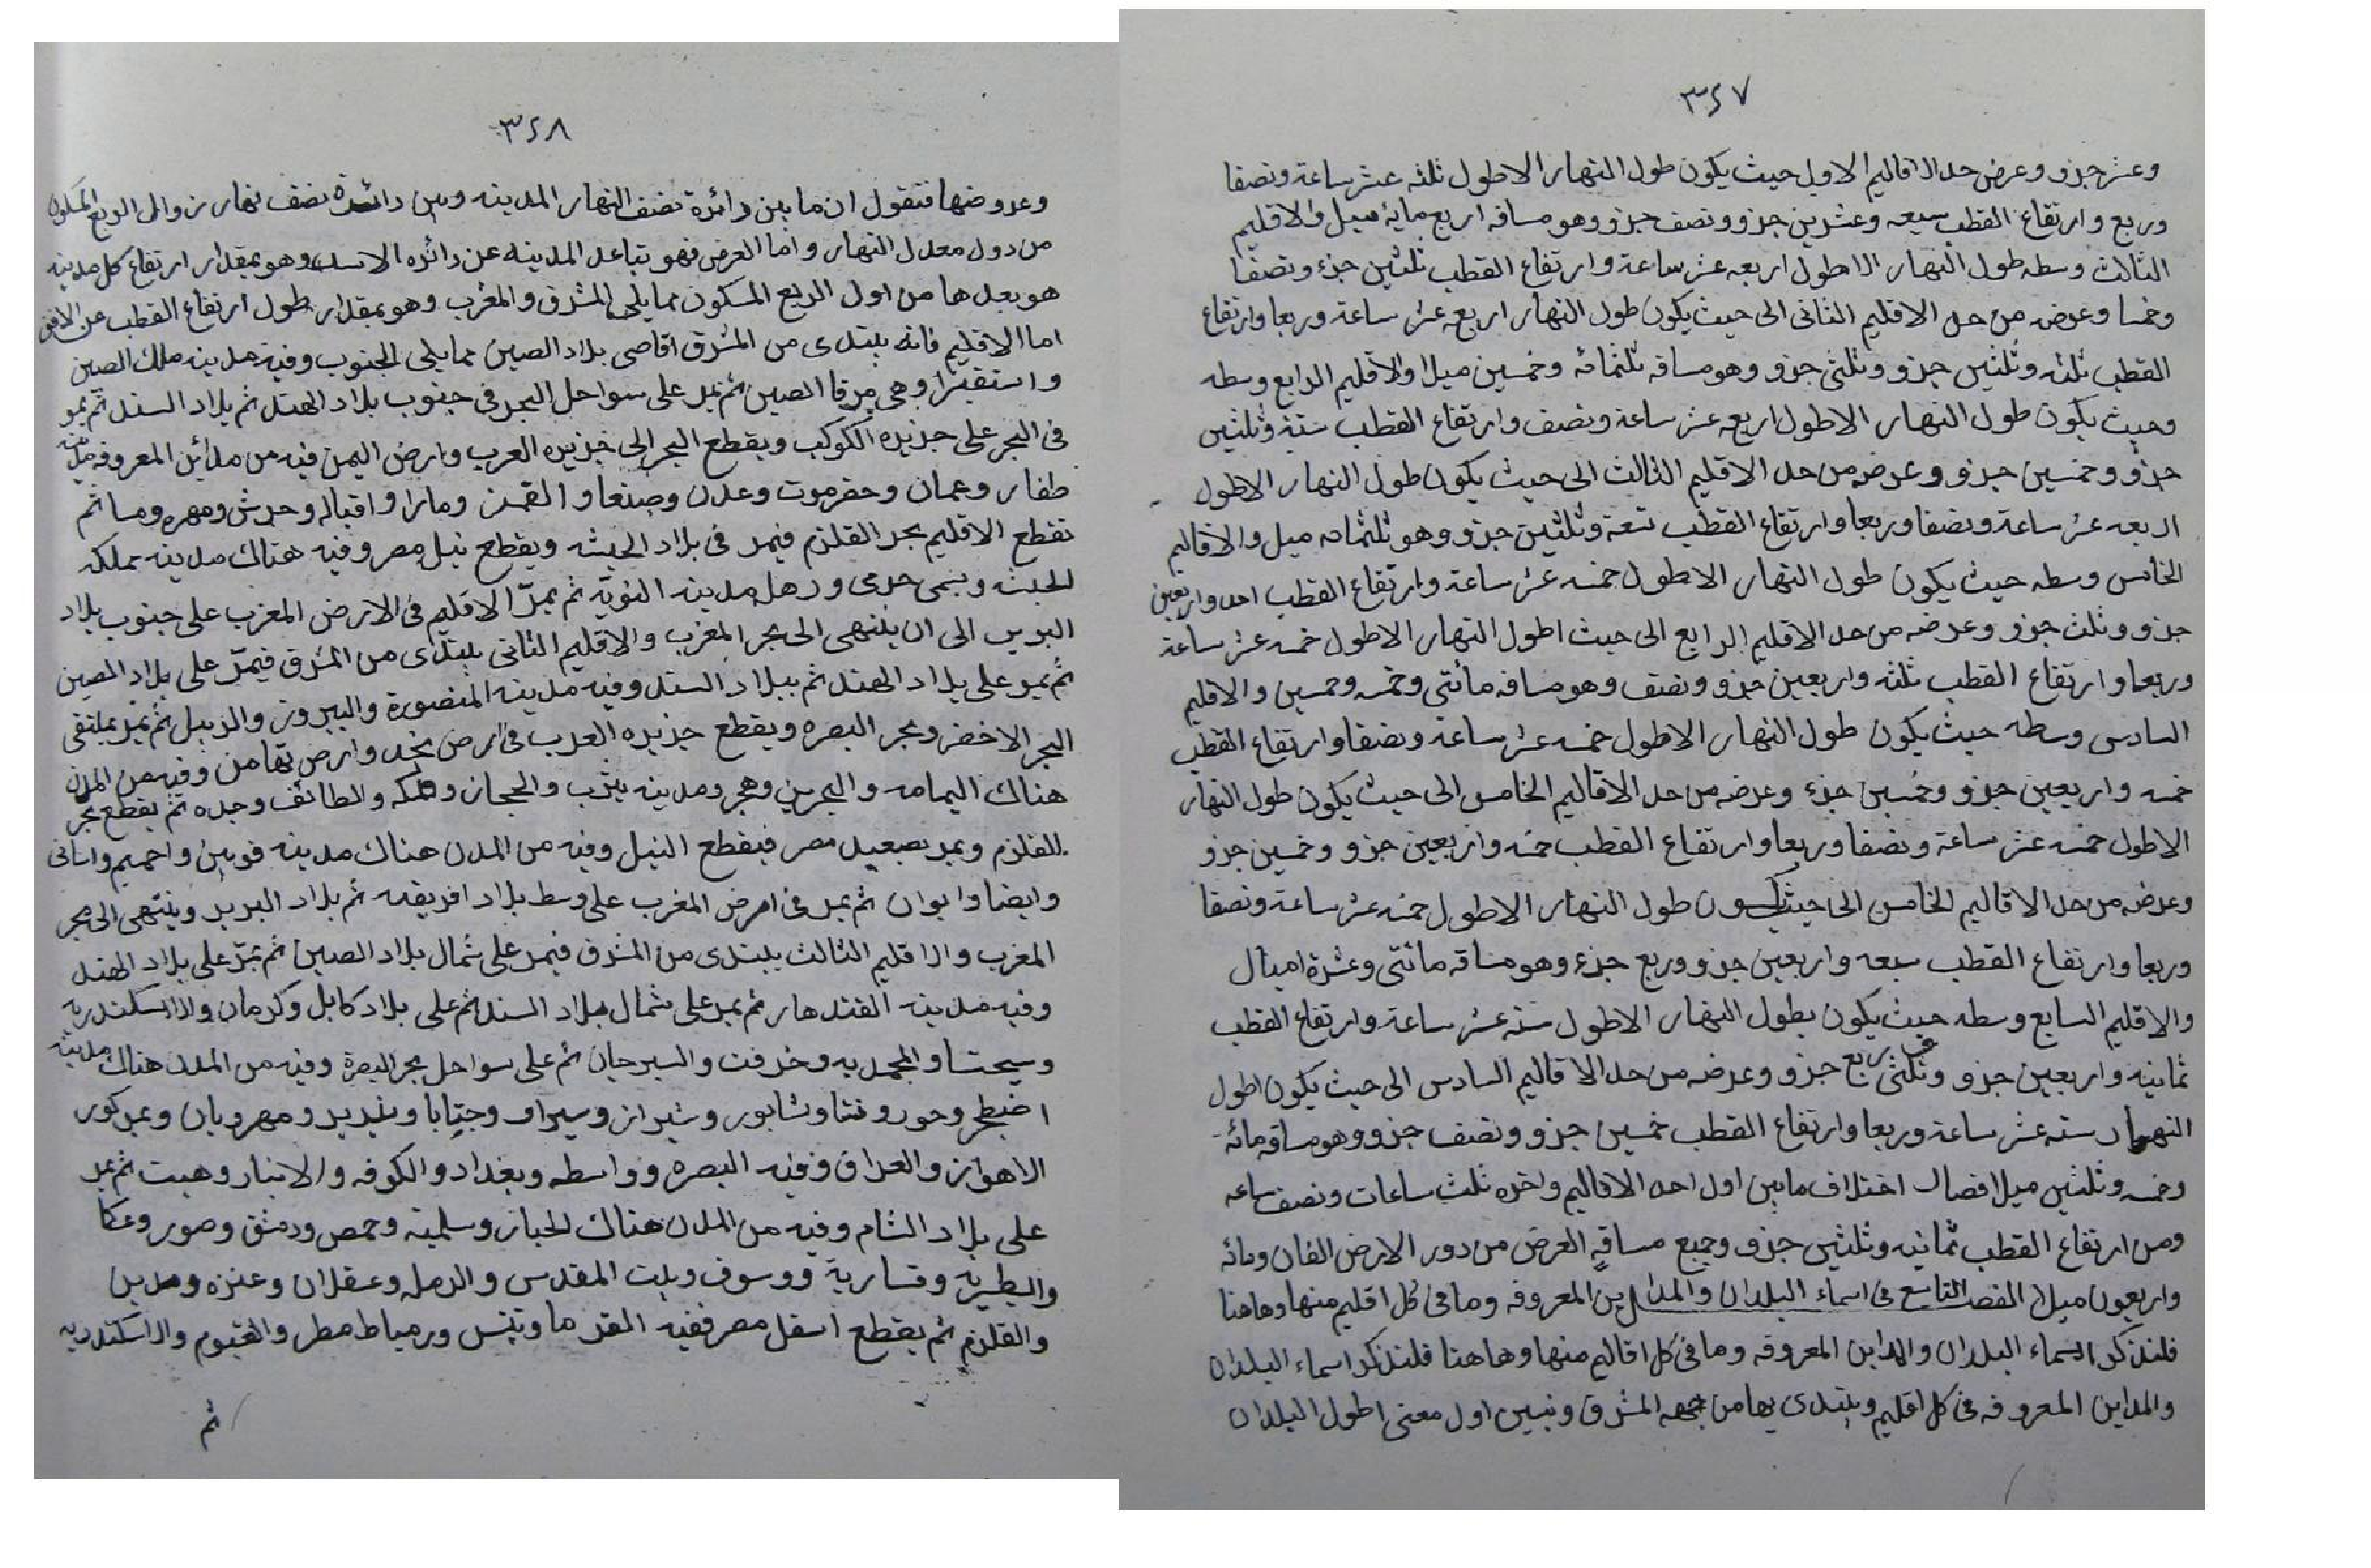 ٣٢٧
وعشر جزو وعرض حد الاقاليم الاول حيث يكون طول النهار الاطول ثلثه عشر ساعة ونصفا
وربع وارتفاع القطب سبعه وعشرين جزو ونصف جزو وهو مسافه اربع ماية ميل والاقليم
الثالث وسطه طول النهار الاطول اربعه عشر ساعة وارتفاع القطب ثلثين جزء ونصفا
وخمسا وعرضه من حد الاقليم الثانى الى حيث يكون طول النهار اربع عشر ساعة وربعا وارتفاع
القطب ثلثه وثلثين جزو وثلثى جزو وهو مسافه ثلثمائه وخمسين ميلا والاقليم الرابع وسطه
وحيث يكون طول النهار الاطول اربعه عشر ساعة ونصف وارتفاع القطب ستة وثلثين
جزو وخمسين جزو وعرضه من حد الاقليم الثالث الى حيث يكون طول النهار الاطول
اربعه عشر ساعة ونصفا وربعا وارتفاع القطب تسعة وثلثين جزو وهو ثلثمايه ميل والاقاليم
الخامس وسطه حيث يكون طول النهار الاطول خمسه عشر ساعة وارتفاع القطب احد واربعين
جزو وثلث جزو وعرضه من حد الاقليم الرابع الى حيث اطول النهار الاطول خمسه عشر ساعة
وربعا وارتفاع القطب ثلثه واربعين جزو ونصف وهو مسافه مائتى وخمسه وخمسين والاقليم
السادس وسطه حيث يكون طول النهار الاطول خمسه عشر ساعة ونصفا وارتفاع القطب
خمسه واربعين جزو وخمسين جزء وعرضه من حد الاقاليم الخامس الى حيث يكون طول النهار
الاطول خمسه عشر ساعة ونصفا وربعا وارتفاع القطب خمسه واربعين جزو وخمسين جزو
وعرضه من حد الاقاليم الخامس الى حيث يكون طول النهار الاطول خمسه عشر ساعة ونصفا
وربعا وارتفاع القطب سبعه واربعين جزو وربع جزء وهو مسافه مائتى وعشرة اميال
والاقليم السابع وسطه حيث يكون بطول النهار الاطول سته عشر ساعة وارتفاع القطب
ثمانيه واربعين جزو وثلثى ربع جزو وعرضه من حد الاقاليم السادس الى حيث يكون اطول
النهار سته عشر ساعة وربعا وارتفاع القطب خمسين جزو ونصف جزو وهو مسافه مائه
وخمسه وثلثين ميلا فصار اختلاف مابين اول احد الاقاليم واخره ثلث ساعات ونصف ساعه
ومن ارتفاع القطب ثمانيه وثلثين جزو وجميع مسافة العرض من دور الارض الفان ومائه
واربعون ميلا الفصل التاسع فى اسماء البلدان والمداين المعروفه وما فى كل اقليم منها وهاهنا
فلنذكر اسماء البلدان والمداين المعروفه وما فى كل اقاليم منها وهاهنا فلنذكر اسماء البلدان
والمداين المعروفه فى كل اقليم ويبتدى بها من جهه المشرق ونبين اول معنى اطول البلدان
٣٢٨
وعروضها فنقول ان ما بين دائرة نصف النهار المدينه وبين دائرة نصف نهار زوال الربع المسكون
من دول معدل النهار واما العرض فهو تباعد المدينه عن دائره وهو بمقدار ارتفاع كل مدينه
هو بعدها من اول الربع المسكون مما يلى المشرق والمغرب وهو بمقدار طول ارتفاع القطب عن الافق
اما الاقليم فانه يبتدى من المشرق اقاصى بلاد الصين مما يلى الجنوب وفيه مدينه ملك الصين
وهى مرقا الصين ثم يمر على سواحل البحر فى جنوب بلاد الهند ثم بلاد السند ثم يمر
فى البحر على جزيره الكوكب ويقطع البحر الى جزيره العرب وارض اليمن فيه من مدائن المعروفه مدينه
ظفار وعمان وحضرموت وعدن وصنعا و ومارا واقباله وجرش ومهره وسا ثم
تقطع الاقليم بحر القلزم فيمر فى بلاد الحبشه ويقطع نيل مصر وفيه هناك مدينه مملكه
الحبشه ويسمى جرمى و مدينه النوبة ثم يمر الاقليم فى الارض المغرب على جنوب بلاد
البربر الى ان ينتهى الى بحر المغرب والاقليم الثانى يبتدى من المشرق فيمر على بلاد الصين
ثم يمر على بلاد الهند ثم ببلاد السند وفيه مدينه المنصورة والبيرون والديبل ثم يمر بملتقى
البحر الاخضر وبحر البصره ويقطع جزيره العرب فى ارض نجد وارض تهامن وفيه من المدن
هناك اليمامه والبحرين وهجر ومدينه يثرب والحجاز ومكه والطائف وجده ثم يقطع بحر
القلزم ويمر بصعيد مصر فيقطع النيل وفيه من المدن هناك مدينه قوص واخميم واسانى
وايضا وابوان ثم يمر فى ارض المغرب على وسط بلاد افريقيه ثم بلاد البربر وينتهى الى بحر
المغرب والاقليم الثالث يبتدى من المشرق فيمر على شمال بلاد الصين ثم يمر على بلاد الهند
وفيه مدينه القندهار ثم يمر على شمال بلاد السند ثم على بلاد كابل وكرمان والاسكندريه
وسجستا والمحمديه وخرفت والسيرجان ثم على سواحل بحر البصرة وفيه من المدن هناك مدينه
اضطخر وجور وفسا وشابور وشيراز وسيراف وجنابا و ومهروبان ويمر كور
الاهواز والعراق وفيه البصره وواسطه وبغداد والكوفه والانبار وهيت ثم يمر
على بلاد الشام وفيه من المدن هناك الحيار وسلميه وحمص ودمشق وصور وعكا
والطبريه وقساريه ووسوف وبيت المقدس والرمله وعسقلان وغزه ومدين
والقلزم ثم يقطع اسفل مصر ففيه الفرما وتنيس ودمياط مطر والفيوم والاسكندريه
ثم